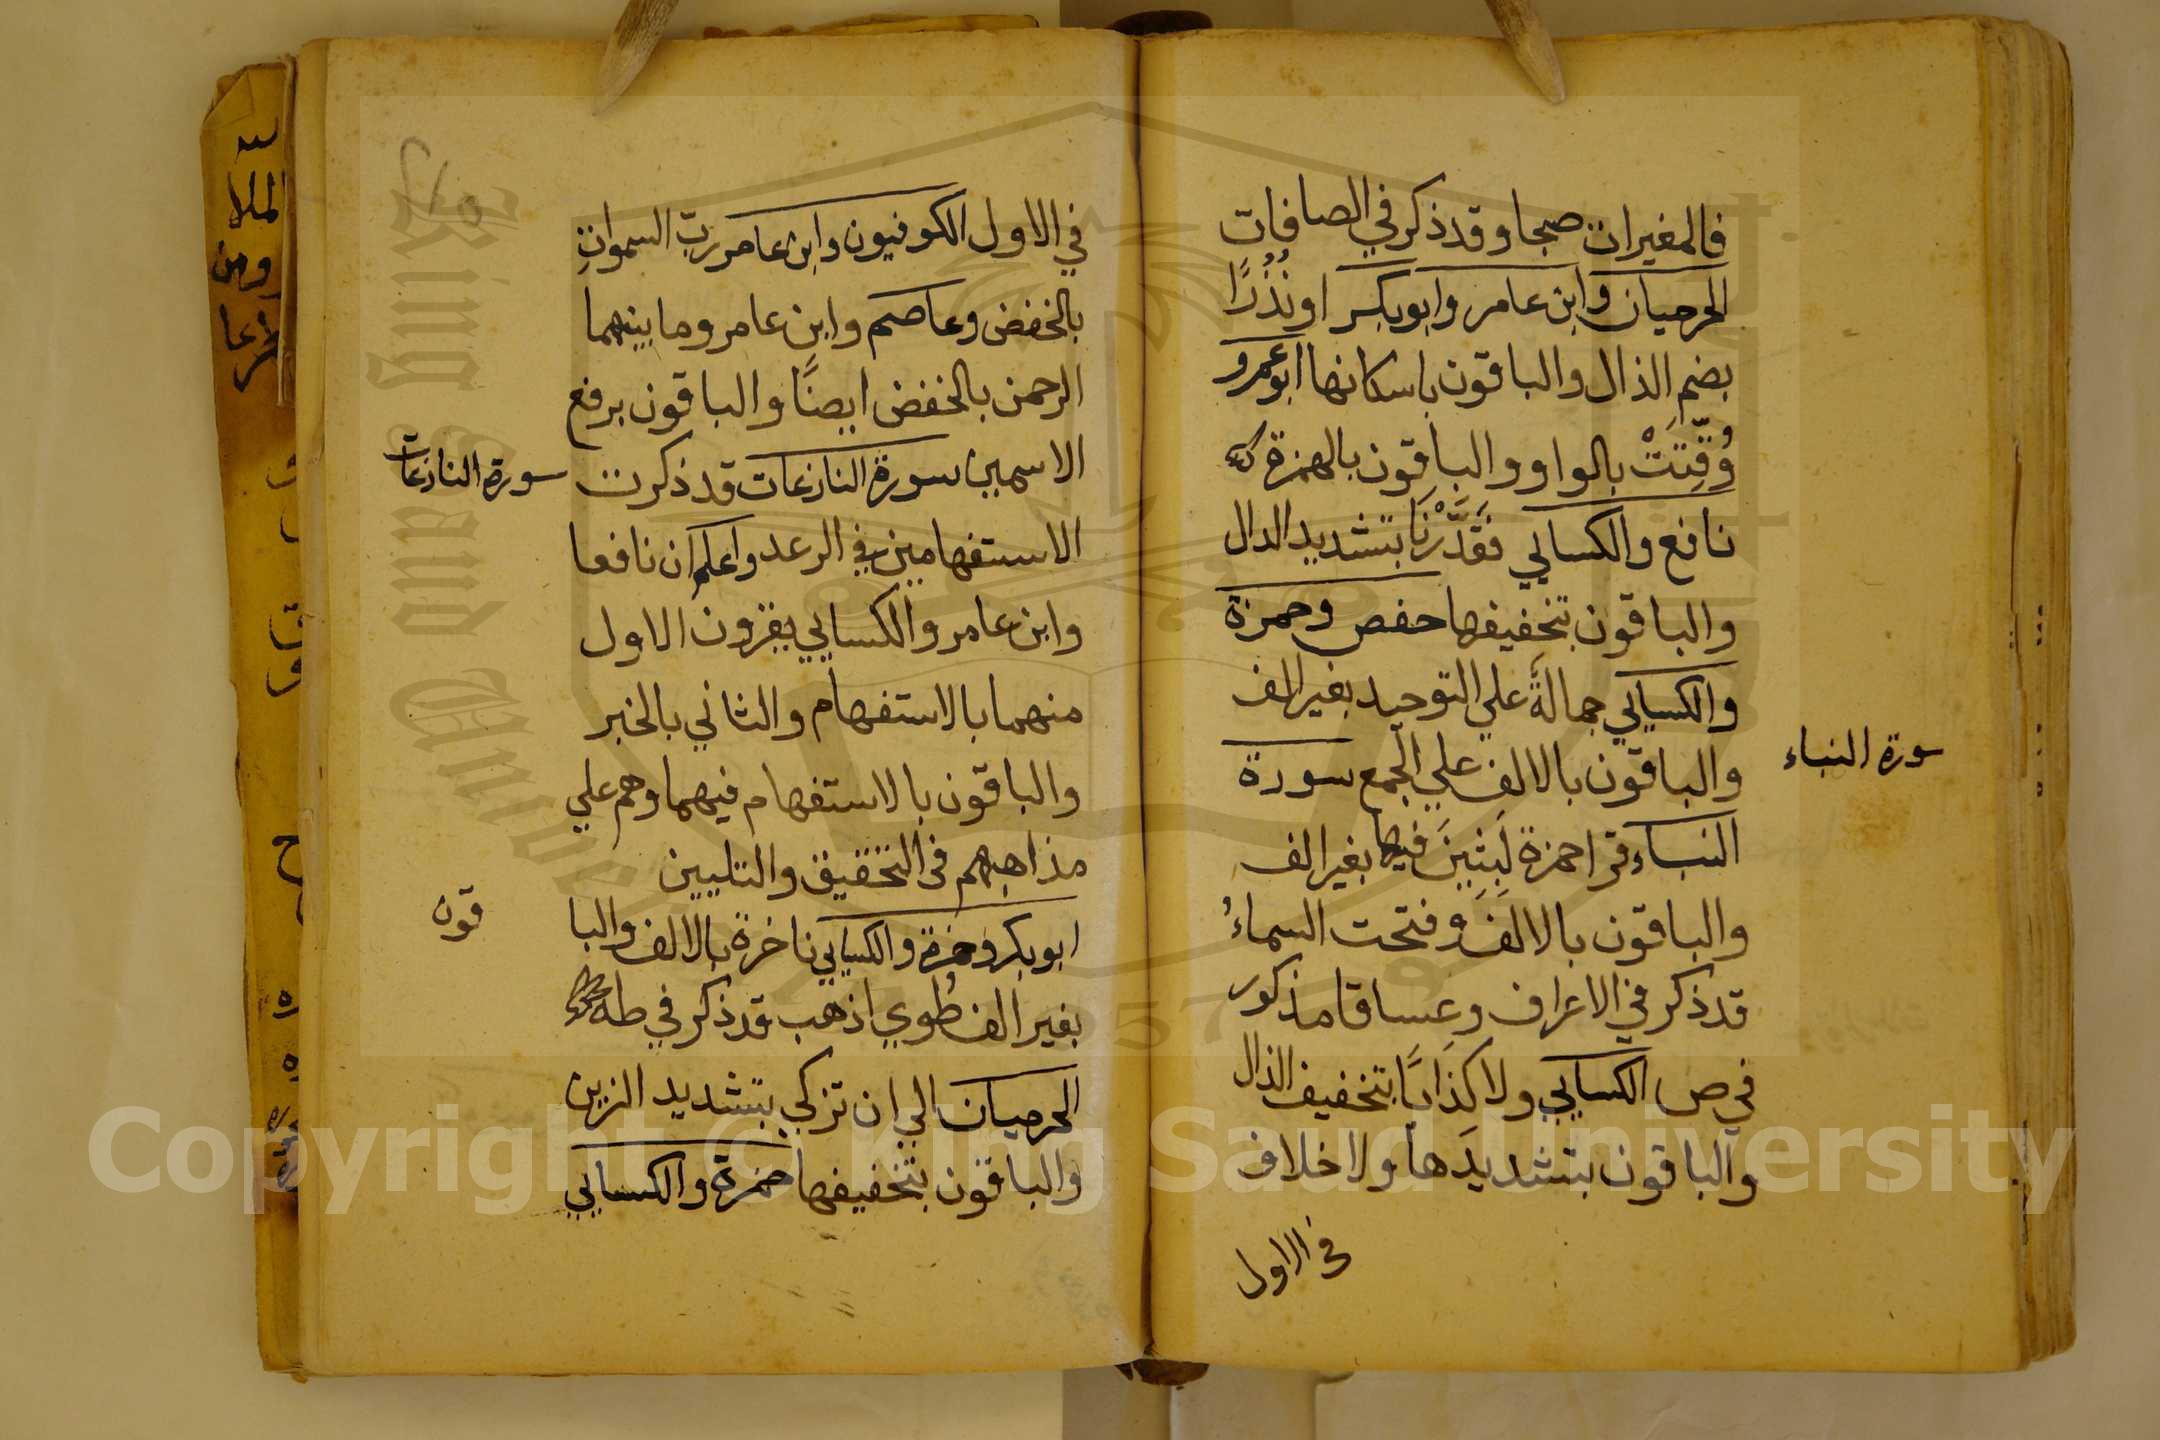 فالمغيرات صبحا وقد ذكر في الصافات
الحرميان وابن عامر وابوبكر او نُذُرًا
بضم الذال والباقون باسكانها ابوعمرو
وُقِّتَتْ بالواو والباقون بالهمزة
نافع والكسايي فَقَدَّرْنَا بتشديد الدال
والباقون بتخفيفها حفص وحمزة
والكسايي جمالةٌ علي التوحيد بغير الف
والباقون بالالف علي الجمع سورة
سورة النباء
النباء قرا حمزة لَبِثِينَ فيها بغير الف
والباقون بالالف وفتحت السماءُ
قد ذكر في الاعراف وغساقا مذكور
في ص الكسايي ولا كِذَابًا بتخفيف الذال
والباقون بتشديدها ولا خلاف
في الاول
في الاول الكوفيون وابن عامر ربِّ السمواتِ
بالخفض وعاصم وابن عامر وما بينهما
الرحمن بالخفض ايضًا والباقون برفع
الاسمين سورة النازعات قد ذكرت
سورة النازعات
الاستفهامين في الرعد واعلم ان نافعا
وابن عامر والكسايي يقرون الاول
منهما بالاستفهام والثاني بالخبر
والباقون بالاستفهام فيهما وهم علي
مذاهبهم في التحقيق والتليين
ابوبكر وحمزة والكسايي ناخرة بالالف والبا
قون
بغير الف طُوي اذهب قد ذكر في طه
الحرميان الي ان تزكي بتشديد الزين
والباقون بتخفيفها حمزة والكسايي
Copyright © King Saud University